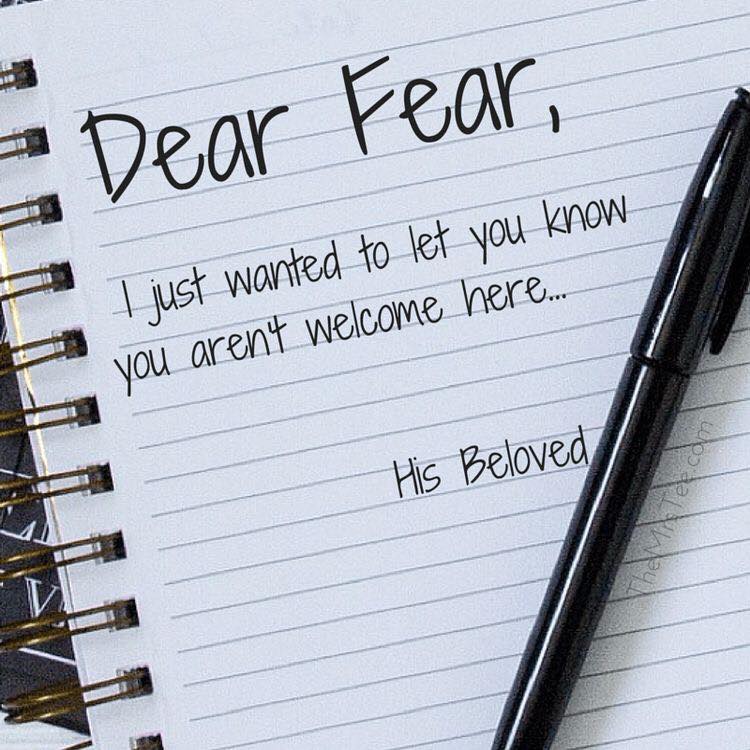 Dear Fear,
I just wanted to let you know
you aren't welcome here...
His Beloved
TheMrsTee.com